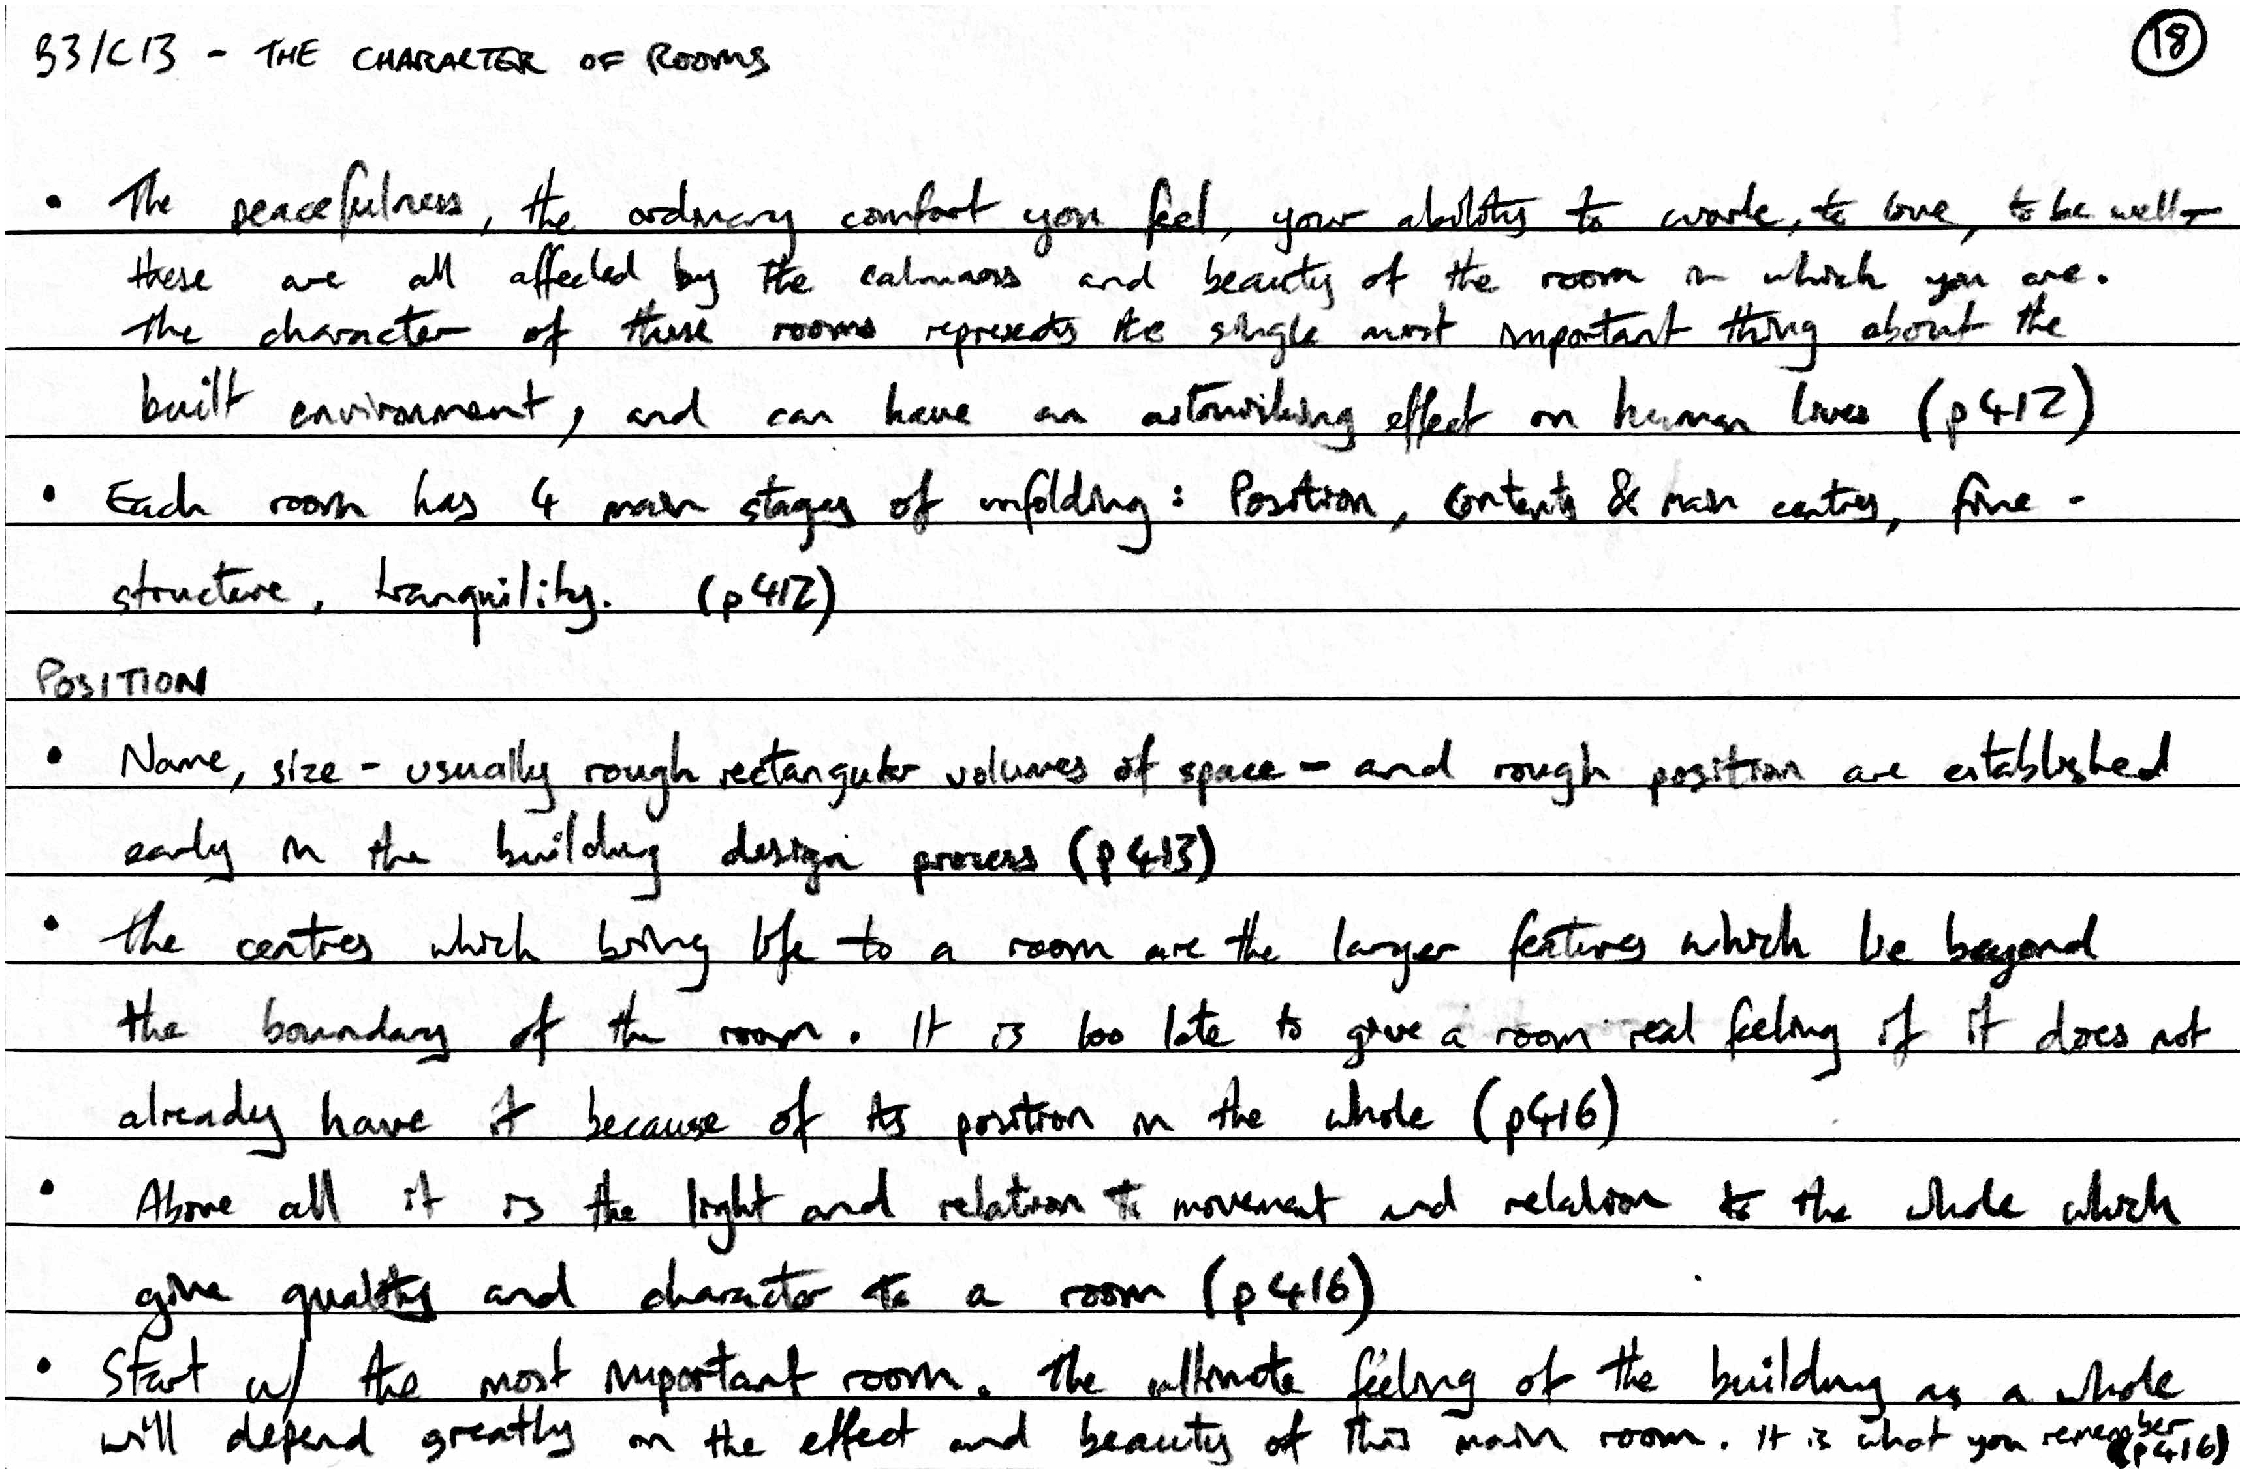 B3/C13 - THE CHARACTER OF ROOMS
18
• The peacefulness, the ordinary comfort you feel, your ability to work, to love, to be well -
these are all affected by the calmness and beauty of the room in which you are.
The character of these rooms represents the single most important thing about the
built environment, and can have an astonishing effect on human lives (p412)
• Each room has 4 main stages of unfolding: Position, contents & main centres, fine -
structure, tranquility. (p412)
POSITION
• Name, size - usually rough rectangular volumes of space - and rough position are established
early in the building design process (p413)
• The centres which bring life to a room are the larger features which lie beyond
the boundary of the room. It is too late to give a room real feeling if it does not
already have it because of its position in the whole (p416)
• Above all it is the light and relation to movement and relation to the whole which
give quality and character to a room (p416)
• Start w/ the most important room. The ultimate feeling of the building as a whole
will depend greatly on the effect and beauty of this main room. It is what you remember (p416)